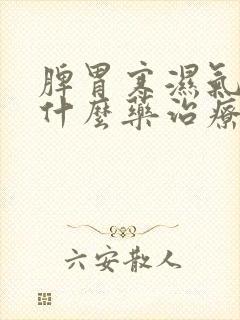 脾胃寒濕氣
什麼藥治療
六安散人